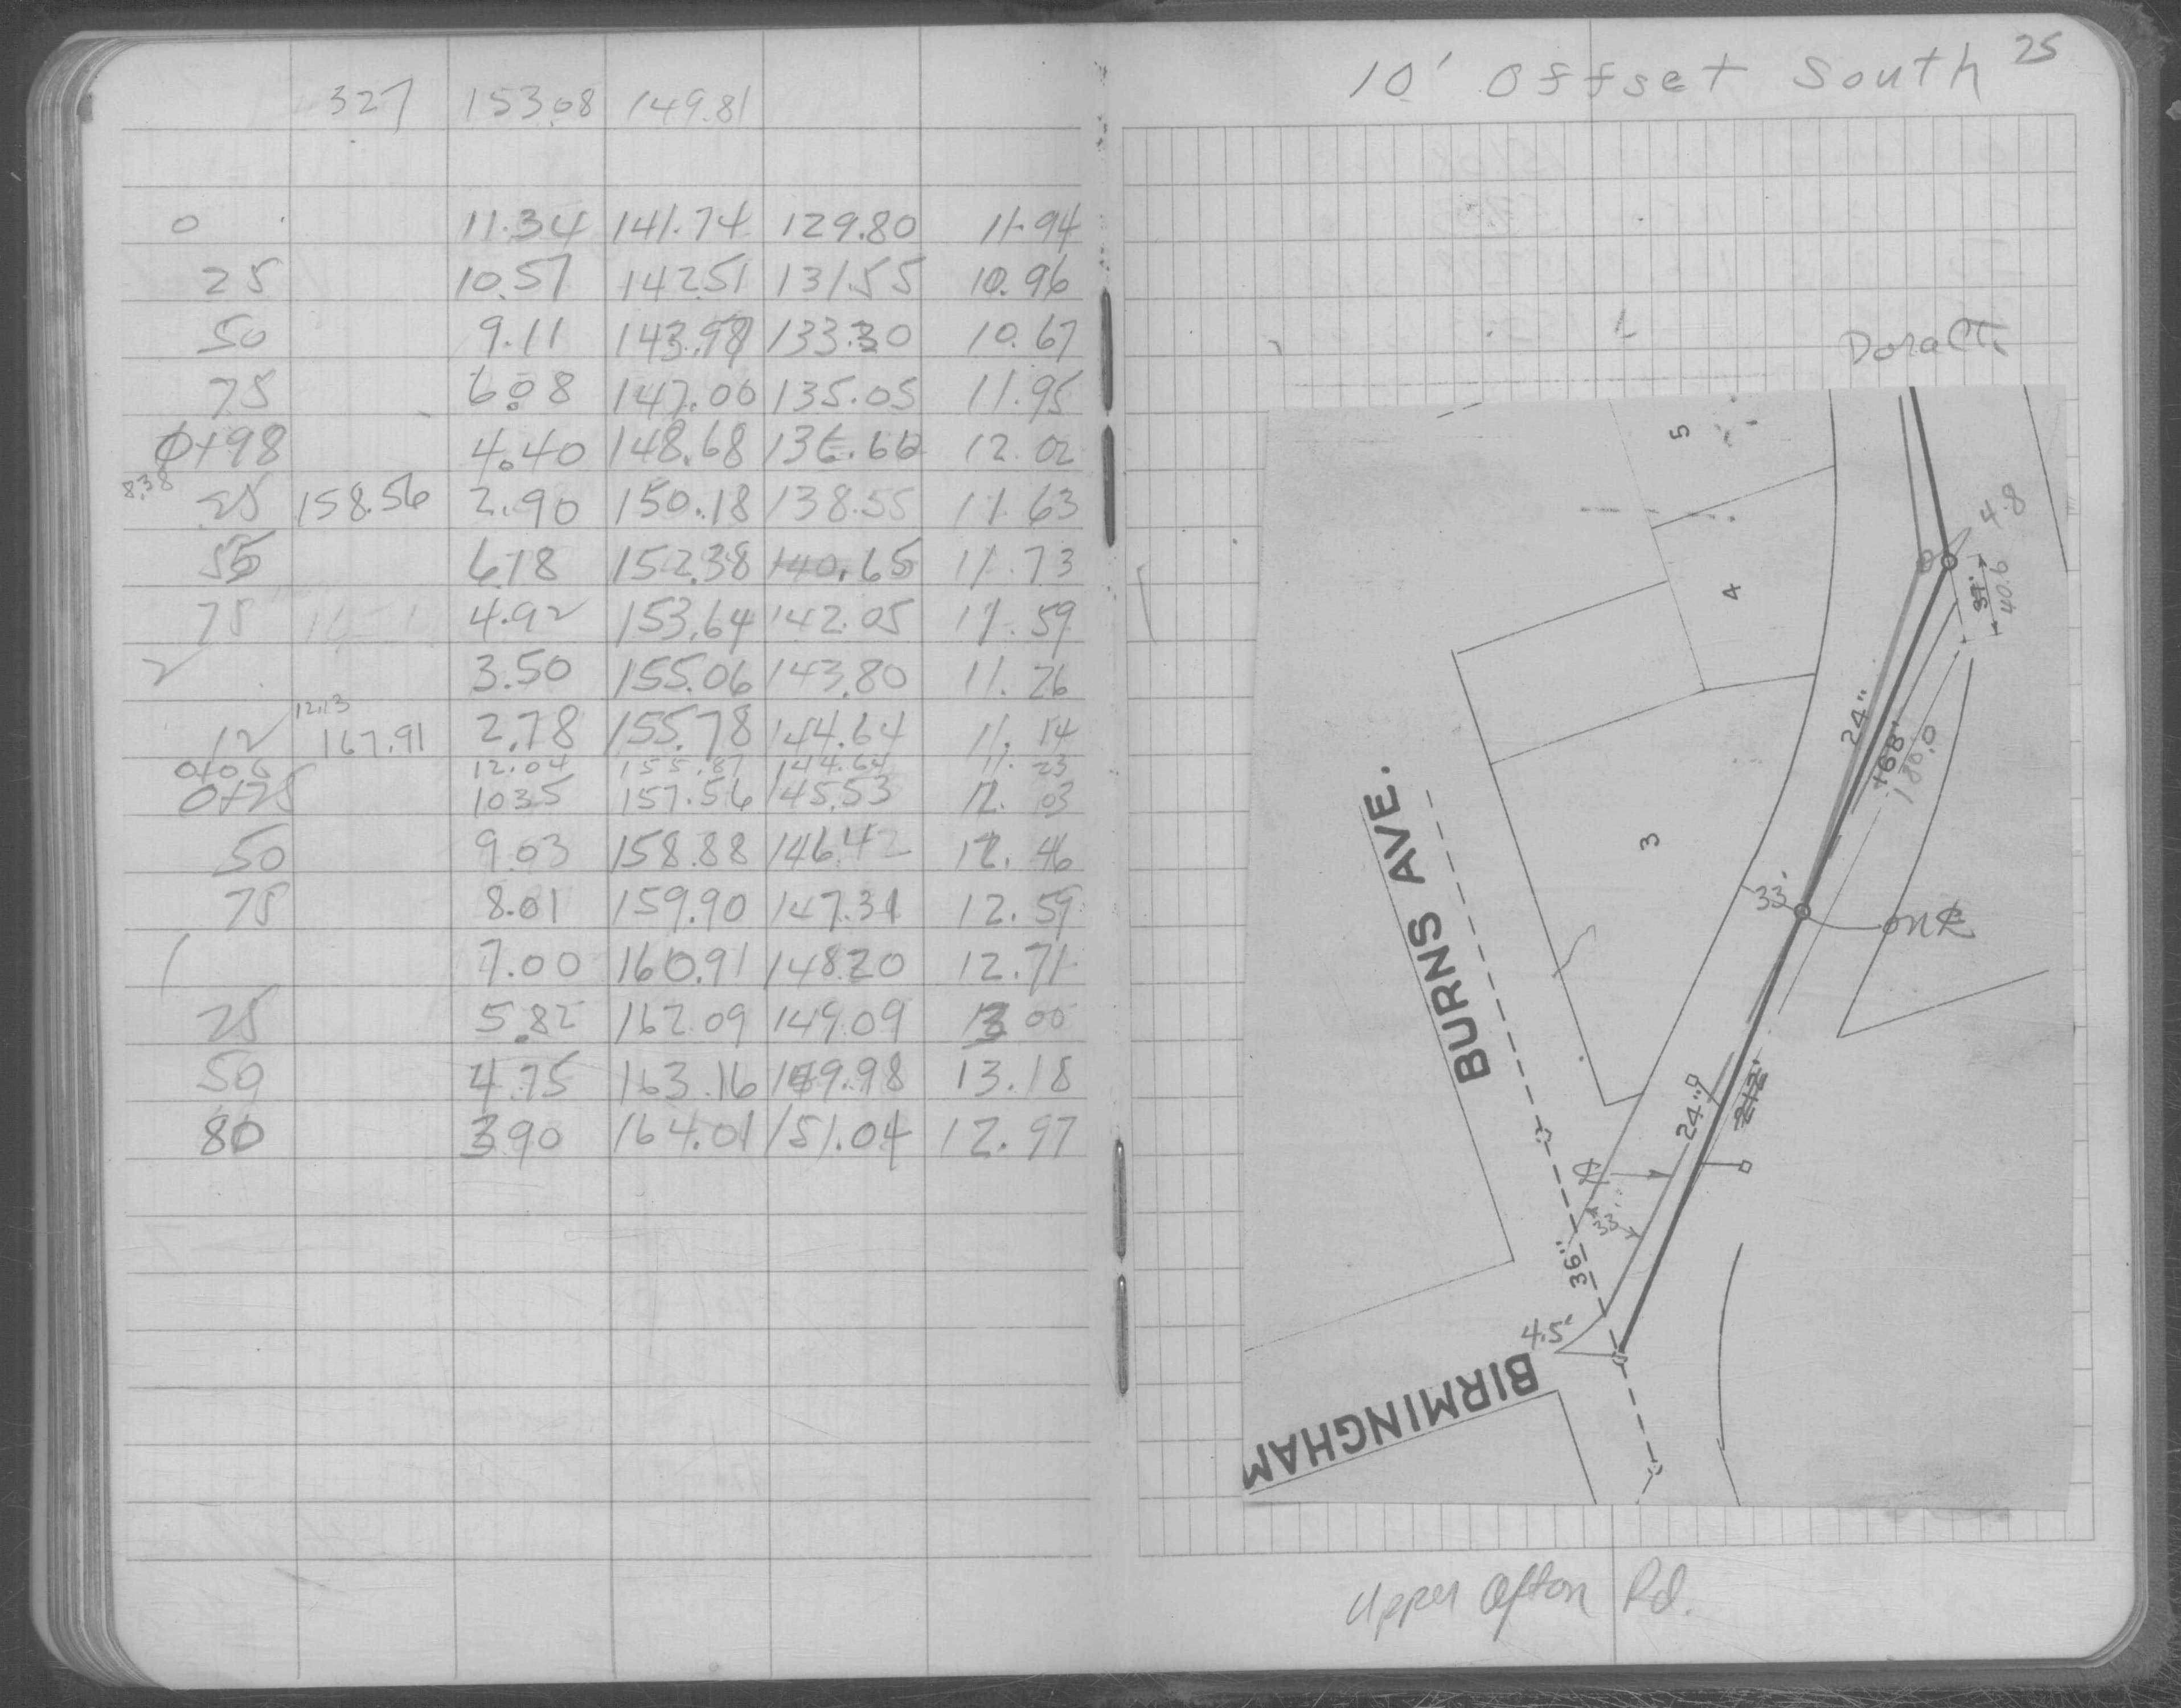 327 153.08 149.81
0 11.34 141.74 129.80 11.94
25 10.57 142.51 131.55 10.96
50 9.11 143.97 133.30 10.67
75 6.08 147.00 135.05 11.95
0+98 4.40 148.68 136.66 12.02
8.38
25 158.56 2.90 150.18 138.55 11.63
55 6.18 152.38 140.65 11.73
75 4.92 153.64 142.05 11.59
2 3.50 155.06 143.80 11.26
12.13
12 167.91 2.78 155.78 144.64 11.14
0+0.6 12.04 155.87 144.64 11.23
0+25 10.35 157.56 145.53 12.03
50 9.03 158.88 146.42 12.46
75 8.01 159.90 147.31 12.59
1 7.00 160.91 148.20 12.71
25 5.82 162.09 149.09 13.00
50 4.75 163.16 149.98 13.18
80 3.90 164.01 151.04 12.97
25
10' Offset South
Dora Ct.
5
4
3
4.8
37'
40.6
24"
168'
180.0
33'
on ℄
BURNS AVE.
24"
212'
℄
33'
36"
4.5'
BIRMINGHAM
Upper Afton Rd.